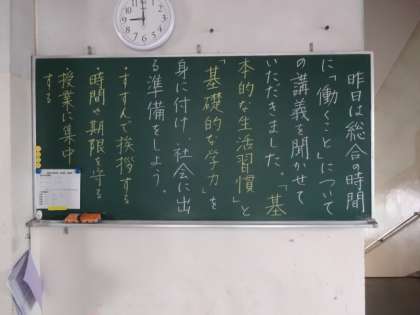 昨日は総合の時間
に「働くこと」について
の講義を聞かせて
いただきました。「基
本的な生活習慣」と
「基礎的な学力」を
身に付け、社会に出
る準備をしよう。
・すすんで挨拶する
・時間、期限を守る
・授業に集中
する